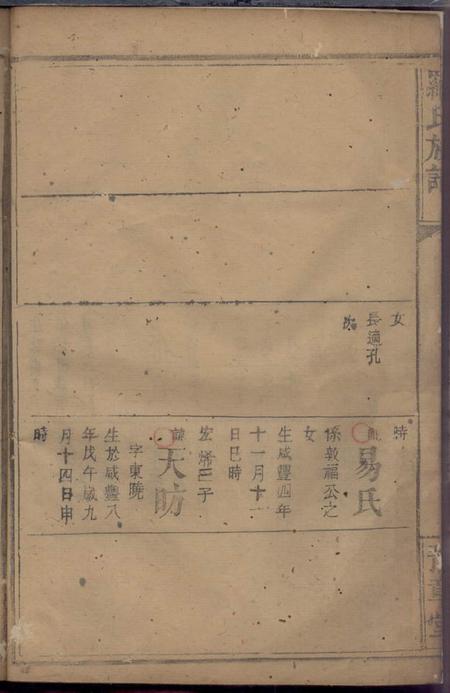 羅氏族譜
女
長適孔
次
時
配易氏
係敦福公之
女
生咸豐四年
十一月十一
日巳時
宏烯三子
諱天昉
字東曉
生於咸豐八
年戊午歲九
月十四日申
時
豫章堂